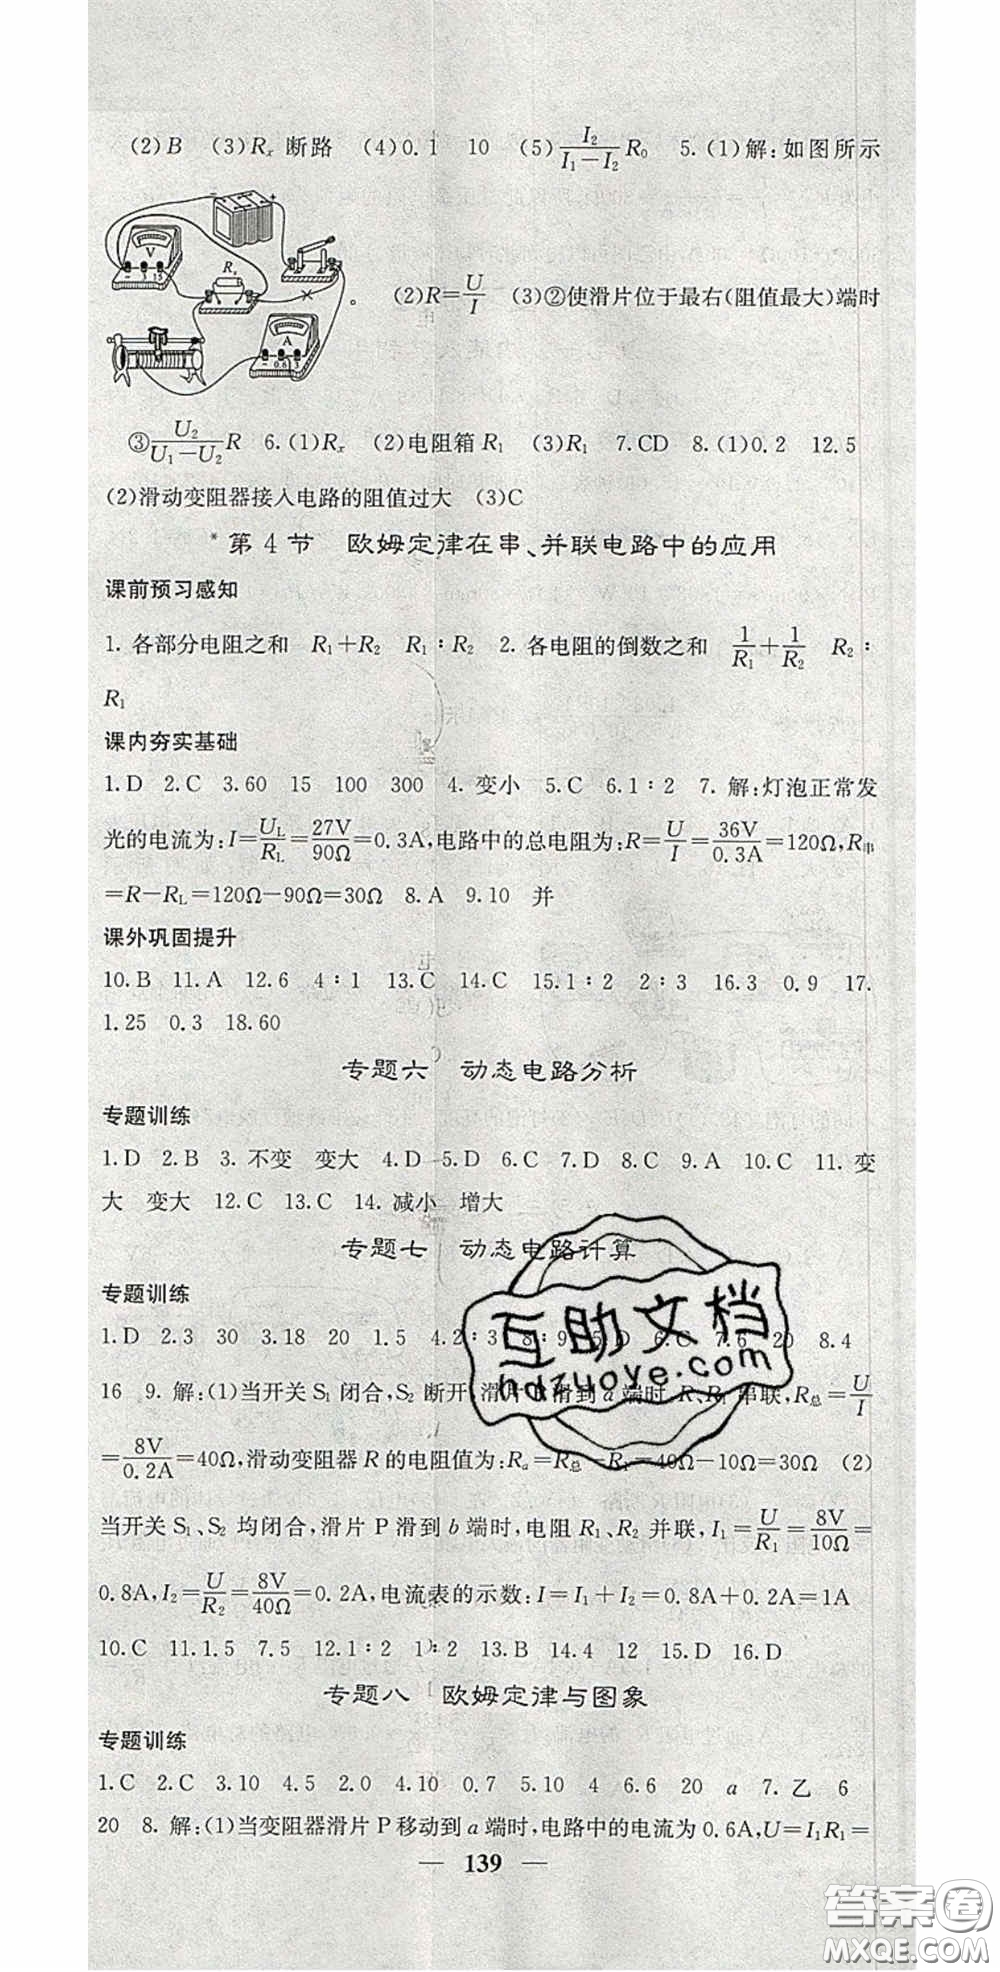 (2)B (3)Rₓ断路 (4)0.1 10 (5)I₂/(I₁−I₂)R₀ 5.(1)解:如图所示
V
− 3 15
Rₓ
− +
×
A
− 0.6 3
。 (2)R=U/I (3)②使滑片位于最右(阻值最大)端时
③U₂/(U₁−U₂)R 6.(1)Rₓ (2)电阻箱R₁ (3)R₁ 7.CD 8.(1)0.2 12.5
(2)滑动变阻器接入电路的阻值过大 (3)C
*第4节 欧姆定律在串、并联电路中的应用
课前预习感知
1. 各部分电阻之和 R₁+R₂ R₁∶R₂ 2. 各电阻的倒数之和 1/R₁+1/R₂ R₂∶
R₁
课内夯实基础
1.D 2.C 3.60 15 100 300 4. 变小 5.C 6.1∶2 7. 解:灯泡正常发
光的电流为:I=U_L/R_L=27V/90Ω=0.3A,电路中的总电阻为:R=U/I=36V/0.3A=120Ω,R串
=R−R_L=120Ω−90Ω=30Ω 8.A 9.10 并
课外巩固提升
10.B 11.A 12.6 4∶1 13.C 14.C 15.1∶2 2∶3 16.3 0.9 17.
1.25 0.3 18.60
专题六 动态电路分析
专题训练
1.D 2.B 3. 不变 变大 4.D 5.D 6.C 7.D 8.C 9.A 10.C 11. 变
大 变大 12.C 13.C 14. 减小 增大
专题七 动态电路计算
专题训练
1.D 2.3 30 3.18 20 1.5 4.2∶3 8∶9 5.D 6.C 7.6 20 8.4
16 9. 解:(1)当开关S₁闭合,S₂断开,滑片P滑到a端时,R、R₁串联,R总=U/I
=8V/0.2A=40Ω,滑动变阻器R的电阻值为:Rₐ=R总−R₁=40Ω−10Ω=30Ω (2)
当开关S₁、S₂均闭合,滑片P滑到b端时,电阻R₁、R₂并联,I₁=U/R₁=8V/10Ω=
0.8A,I₂=U/R₂=8V/40Ω=0.2A,电流表的示数:I=I₁+I₂=0.8A+0.2A=1A
10.C 11.1.5 7.5 12.1∶2 1∶2 13.B 14.4 12 15.D 16.D
专题八 欧姆定律与图象
专题训练
1.C 2.C 3.10 4.5 2.0 4.10 0.7 5.10 4 6.6 20 a 7.乙 6
20 8. 解:(1)当变阻器滑片P移动到a端时,电路中的电流为0.6A,U=I₁R₁=
— 139 —
互助文档
hdzuoye.com
答案圈
MXQE.COM